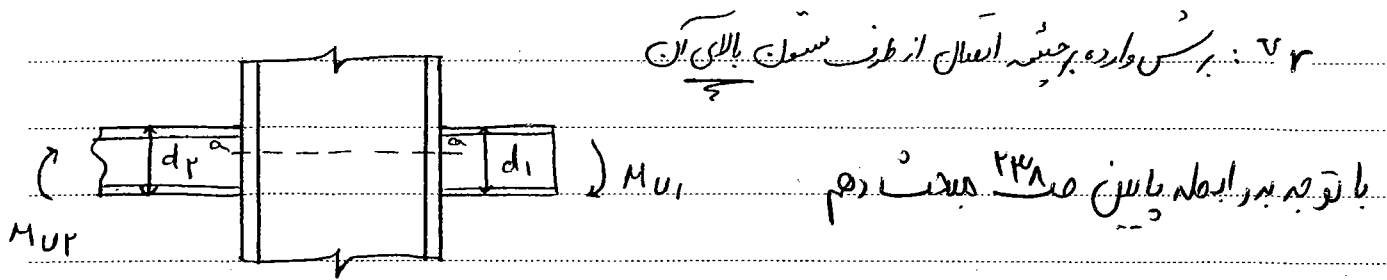 V۲ : برش وارده بر چشمه اتصال از طرف ستون بالای آن
d۲ a a d۱ MU۱
با توجه به رابطه پایین صـ ۲۳۸ مبحث دهم
MU۲